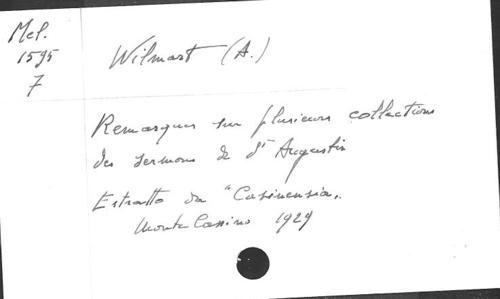 Mel.
1595
7
Wilmart (A.)
Remarques sur plusieurs collections
des sermons de St Augustin
Estratto da "Casinensia„
Monte Cassino 1929